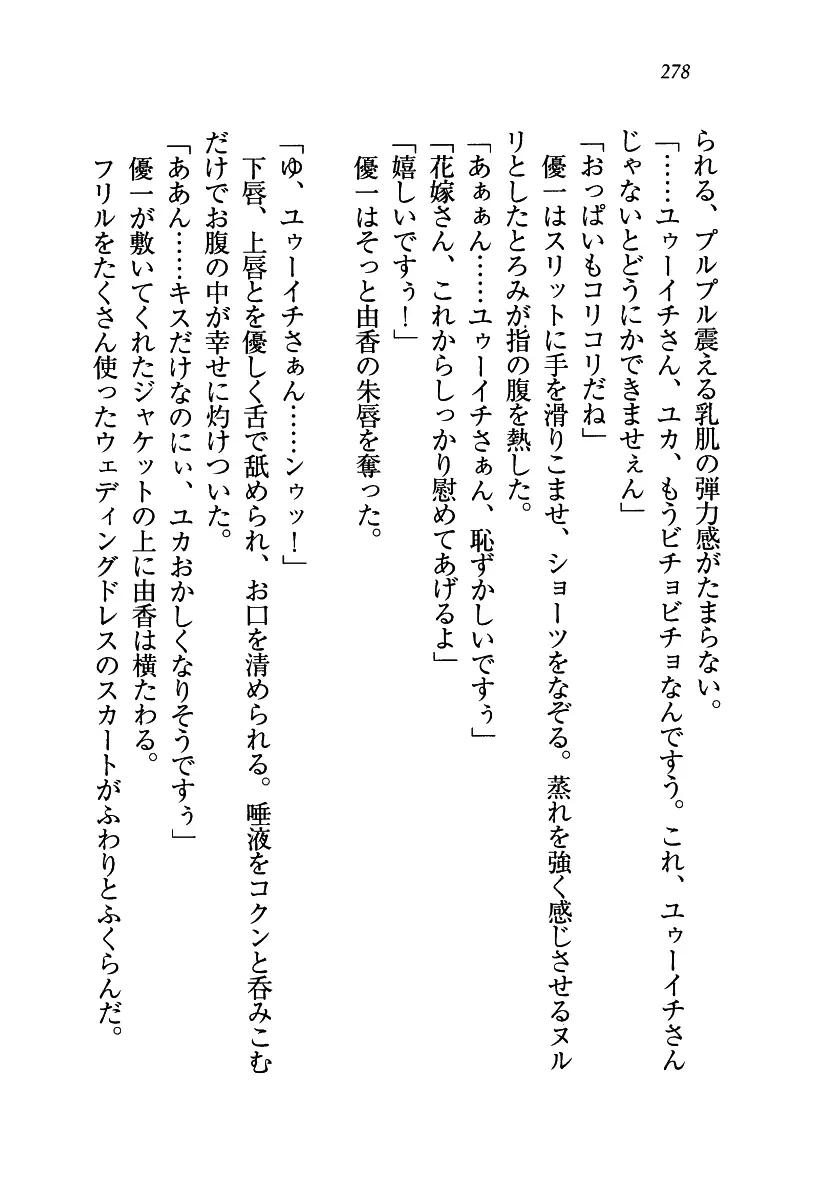 278
られる、プルプル震える乳肌の弾力感がたまらない。
「……ユゥーイチさん、ユカ、もうビチョビチョなんですう。これ、ユゥーイチさん
じゃないとどうにかできませぇん」
「おっぱいもコリコリだね」
優一はスリットに手を滑りこませ、ショーツをなぞる。蒸れを強く感じさせるヌル
リとしたとろみが指の腹を熱した。
「あぁぁん……ユゥーイチさぁん、恥ずかしいですぅ」
「花嫁さん、これからしっかり慰めてあげるよ」
「嬉しいですぅ！」
優一はそっと由香の朱唇を奪った。
「ゆ、ユゥーイチさぁん……ンゥッ！」
下唇、上唇とを優しく舌で舐められ、お口を清められる。唾液をコクンと呑みこむ
だけでお腹の中が幸せに灼けついた。
「ああん……キスだけなのにぃ、ユカおかしくなりそうですぅ」
優一が敷いてくれたジャケットの上に由香は横たわる。
フリルをたくさん使ったウェディングドレスのスカートがふわりとふくらんだ。